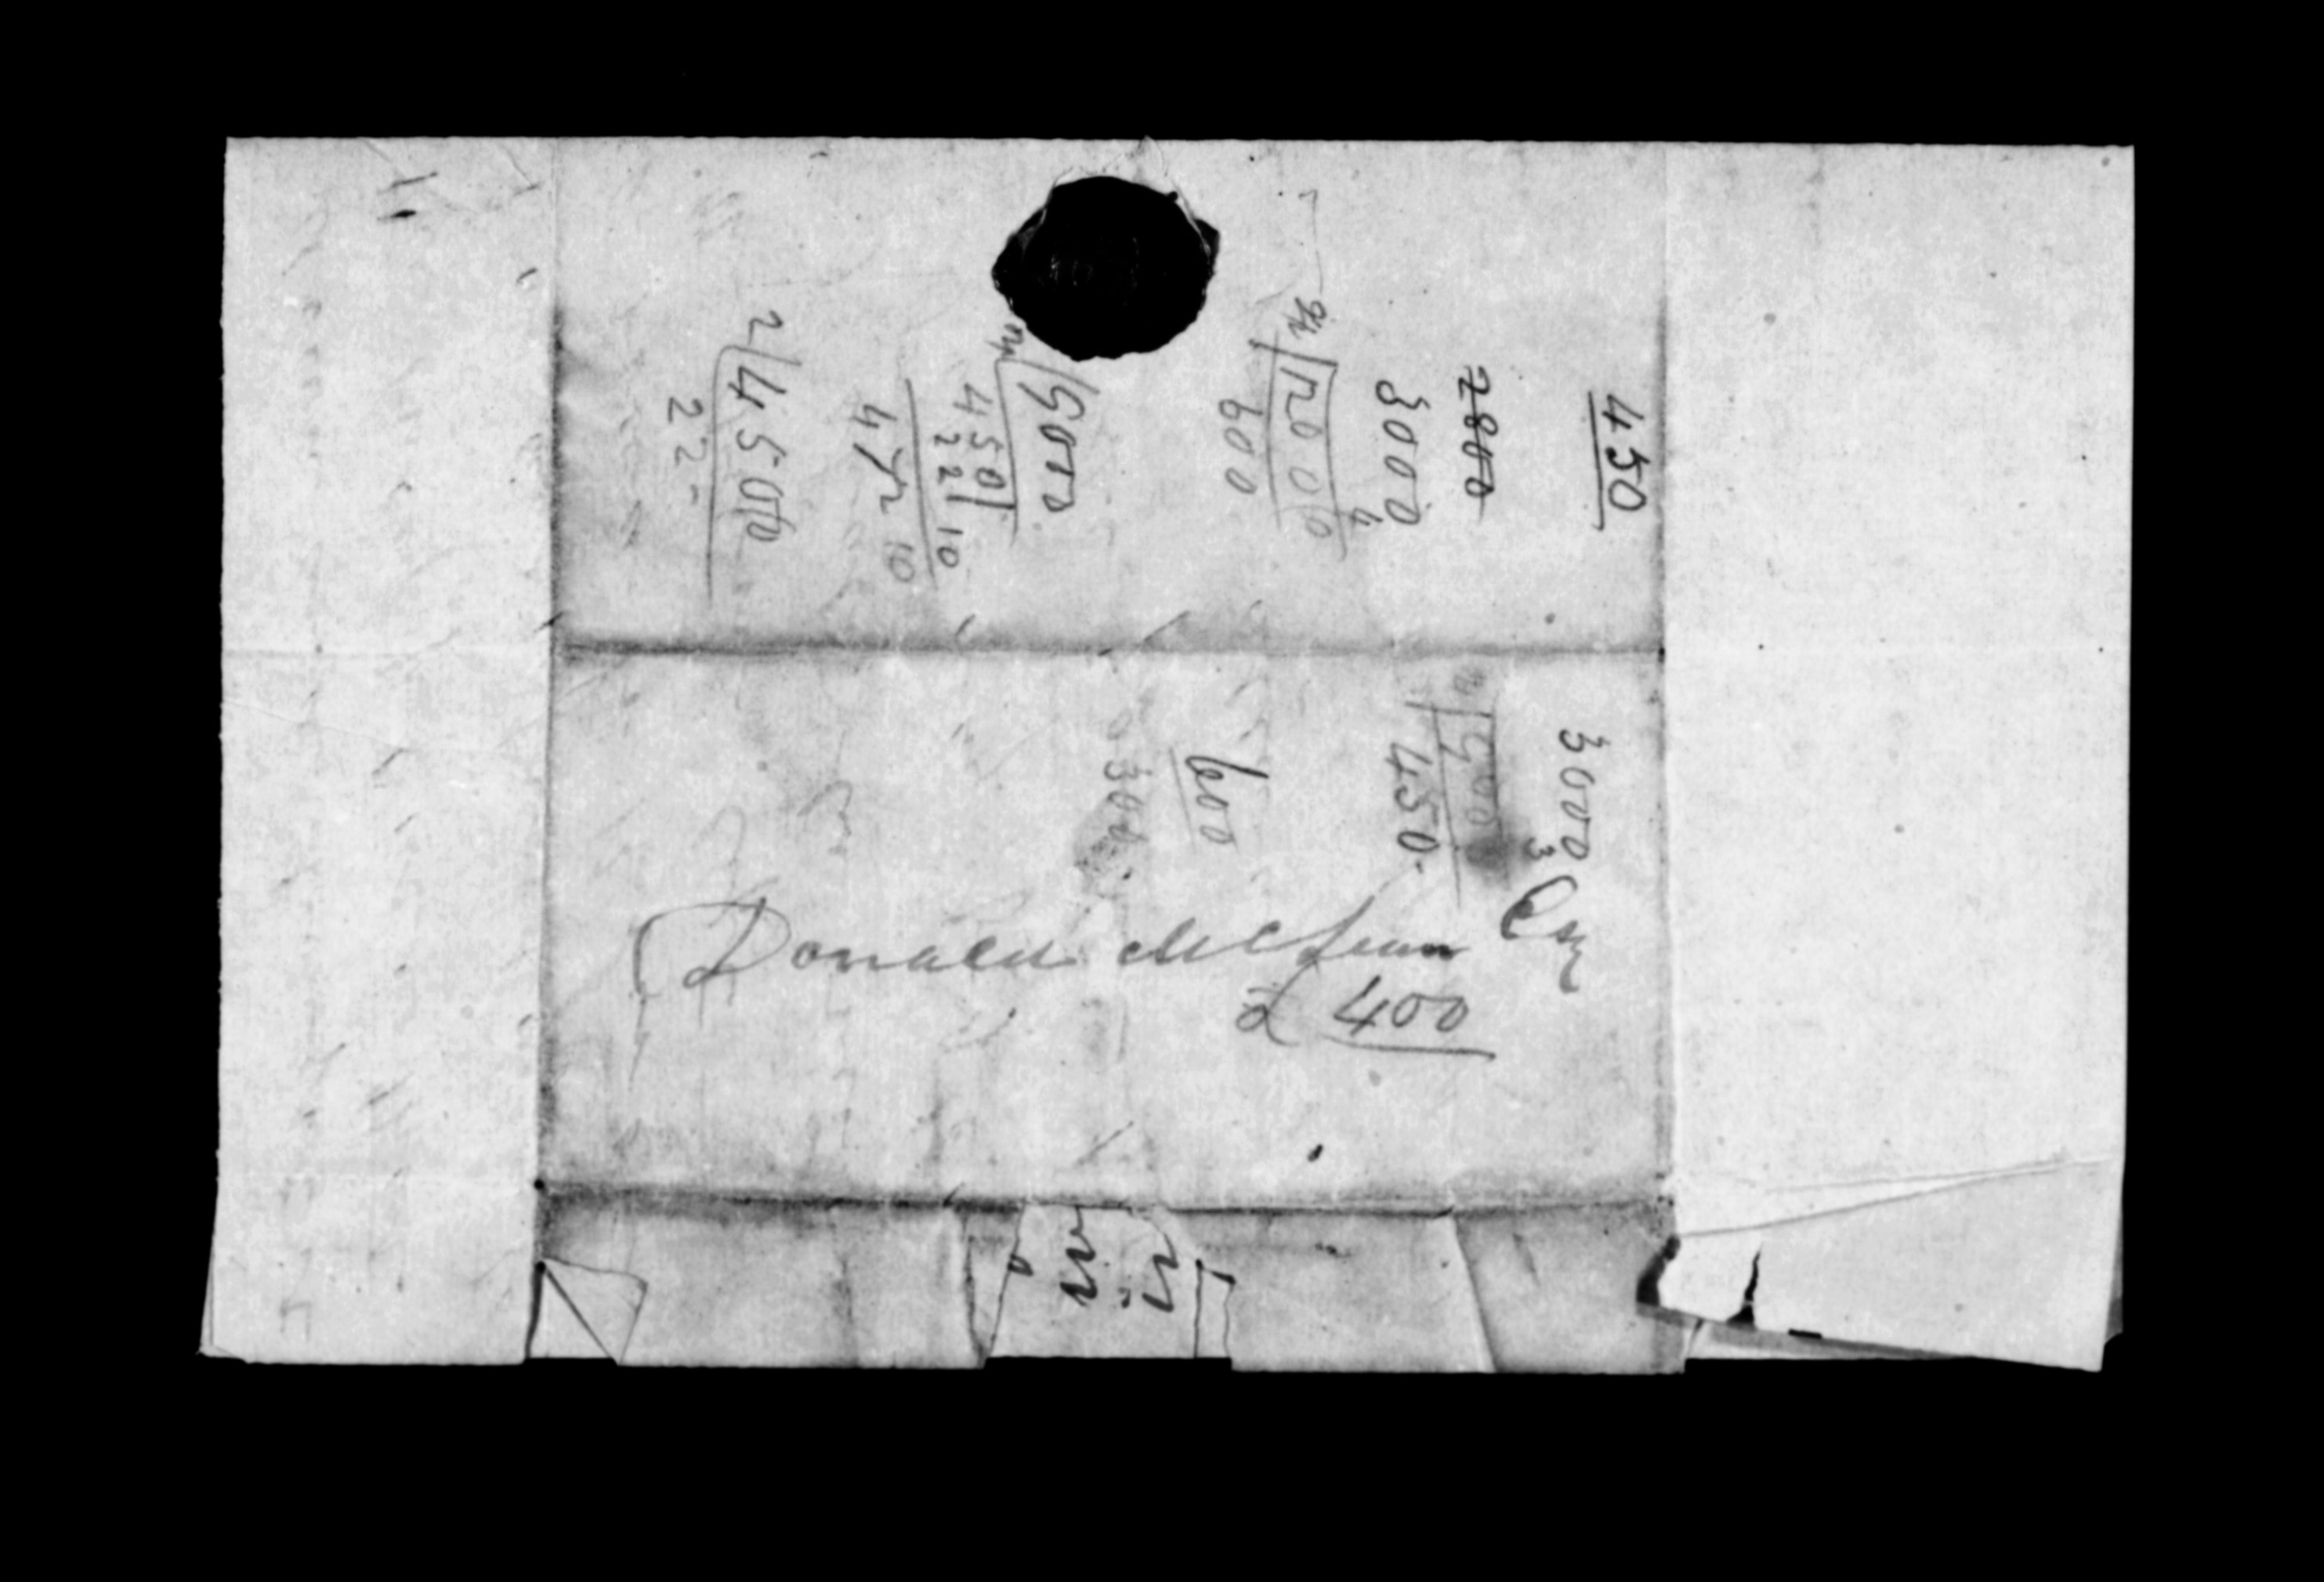 450
2800
3000
4
600
9000
450
22 10
472 10
2/4500
22-
3000
3
9000
450.
600
300
Donald McLean Esq
£ 400